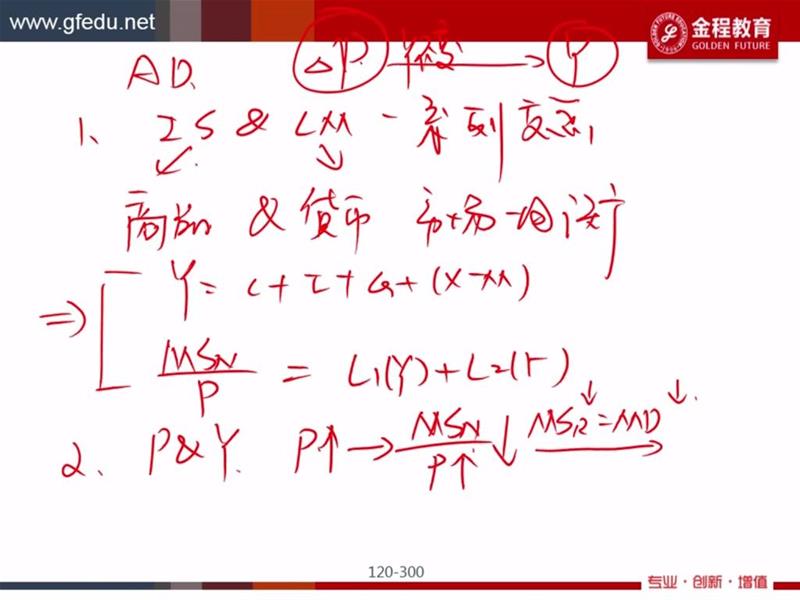 www.gfedu.net
金程教育
GOLDEN FUTURE
AD. ΔP → Y
1、 IS & LM 一系列交点
商品 & 货币 市场均衡
⇒ Y = C + I + G + (X-M)
MSN/P = L1(Y) + L2(r)
2、 P&Y. P↑ → MSN/P↑ ↓ MSR↓ = MD↓ →
120-300
专业·创新·增值